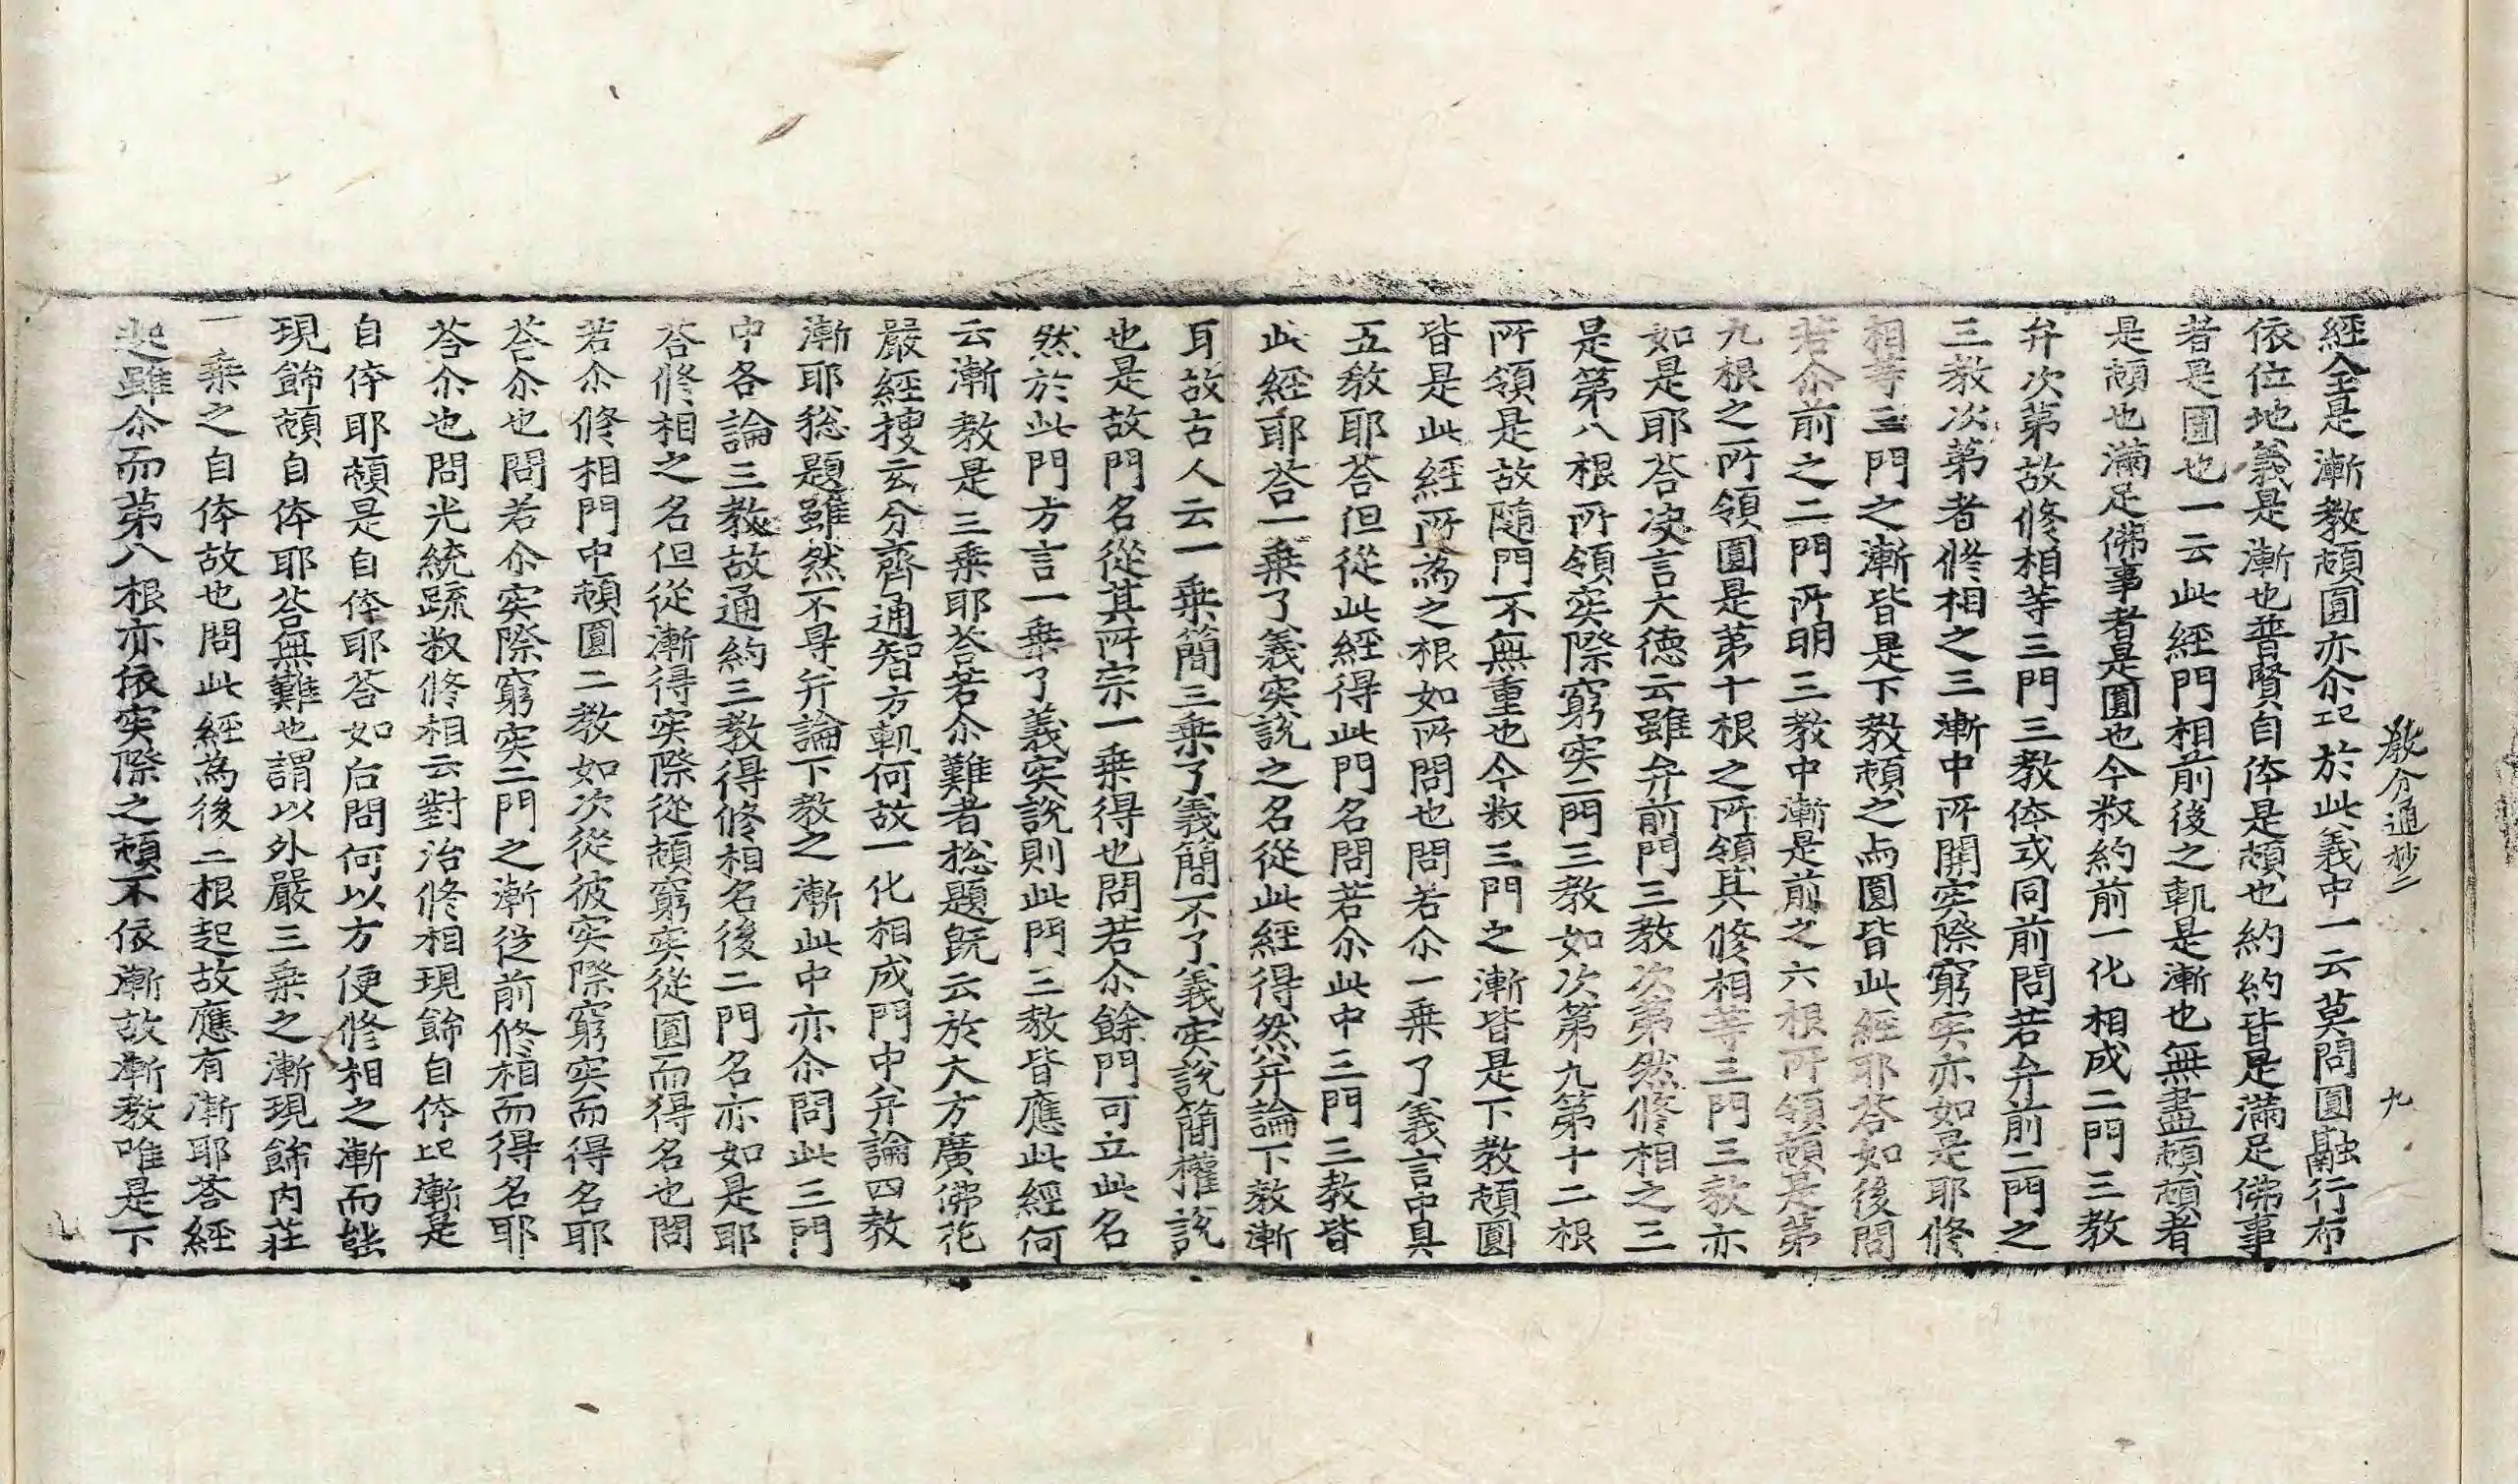 教分通抄二　九
經全是漸教頓圓亦尒已於此義中一云莫問圓融行布
依位地義是漸也普賢自体是頓也約約皆是滿足佛事
者是圓也一云此經門相前後之軌是漸也無盡頓頓者
是頓也滿足佛事者是圓也今叙約前一化相成二門三教
弁次第故修相等三門三教体或同前問若弁前二門之
三教次第者修相之三漸中所開实際窮实亦如是耶修
相等三門之漸皆是下教頓之与圓皆此經耶荅如後問
若尒前之二門所明三教中漸是前之六根所領頓是第
九根之所領圓是第十根之所領其修相等三門三教亦
如是耶荅決言大德云雖弁前門三教次第然修相之三
是第八根所領实際窮实二門三教如次第九第十二根
所領是故随門不無重也今叙三門之漸皆是下教頓圓
皆是此經所為之根如所問也問若尒一乗了義言中具
五教耶荅但從此經得此門名問若尒此中三門三教皆
此經耶荅一乗了義实說之名從此經得然弁論下教漸
耳故古人云一乗簡三乗了義簡不了義实說簡權說
也是故門名從其所宗一乗得也問若尒餘門可立此名
然於此門方言一乗了義实說則此門三教皆應此經何
云漸教是三乗耶荅若尒難者捴題既云於大方廣佛花
嚴經搜玄分齊通智方軌何故一化相成門中弁論四教
漸耶捴題雖然不㝵弁論下教之漸此中亦尒問此三門
中各論三教故通約三教得修相名後二門名亦如是耶
荅修相之名但從漸得实際從頓窮实從圓而得名也問
若尒修相門中頓圓二教如次從彼实際窮实而得名耶
荅尒也問若尒实際窮实二門之漸從前修相而得名耶
荅尒也問光統䟽叙修相云對治修相現餙自体已漸是
自体耶頓是自体耶荅如后問何以方便修相之漸而能
現餙頓自体耶荅無難也謂以外嚴三乗之漸現餙内荘
一乗之自体故也問此經為後二根起故應有漸耶荅經
起雖尒而第八根亦依实際之頓不依漸故漸教唯是下